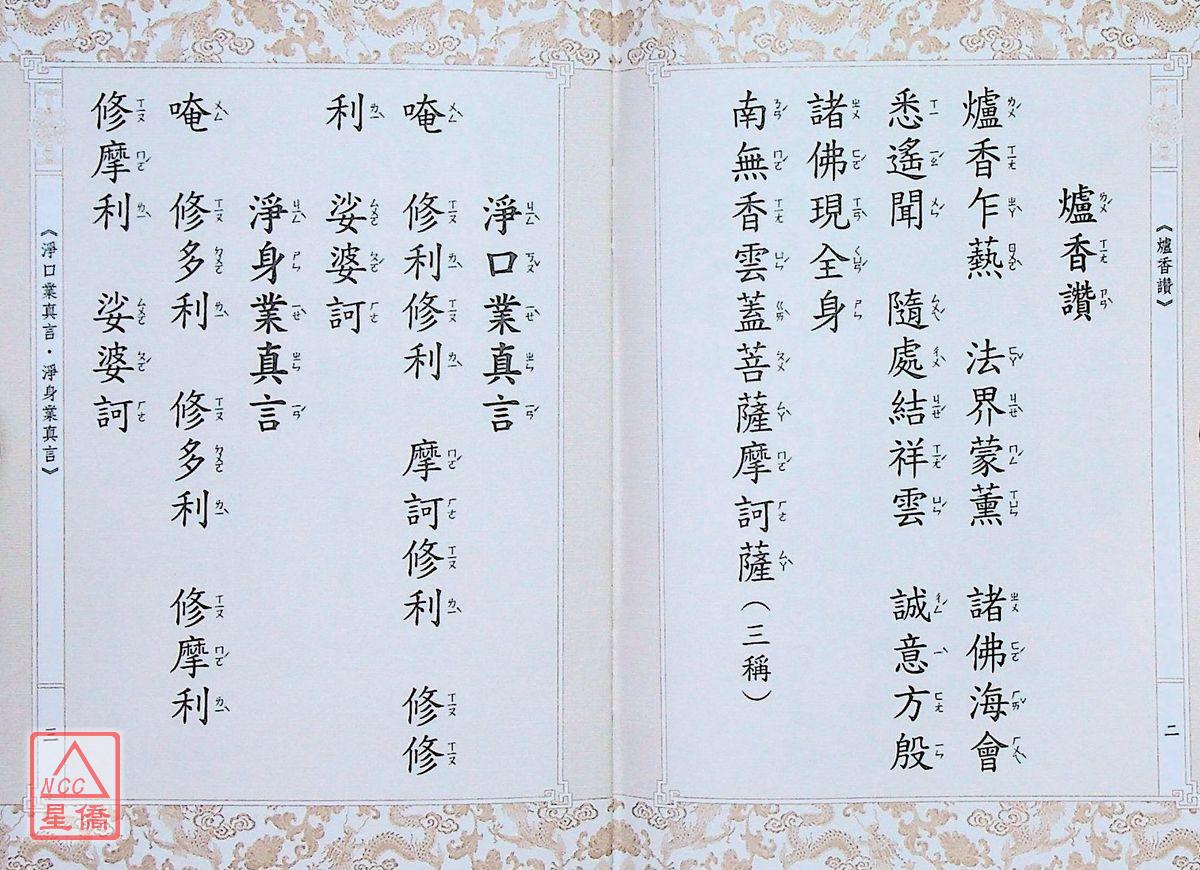 《爐香讚》
二
爐香讚
爐香乍爇　法界蒙薰　諸佛海會
悉遙聞　隨處結祥雲　誠意方殷
諸佛現全身
南無香雲蓋菩薩摩訶薩（三稱）
淨口業真言
唵　修利修利　摩訶修利　修修
利　娑婆訶
淨身業真言
唵　修多利　修多利　修摩利
修摩利　娑婆訶
《淨口業真言・淨身業真言》
三
NCC
星僑